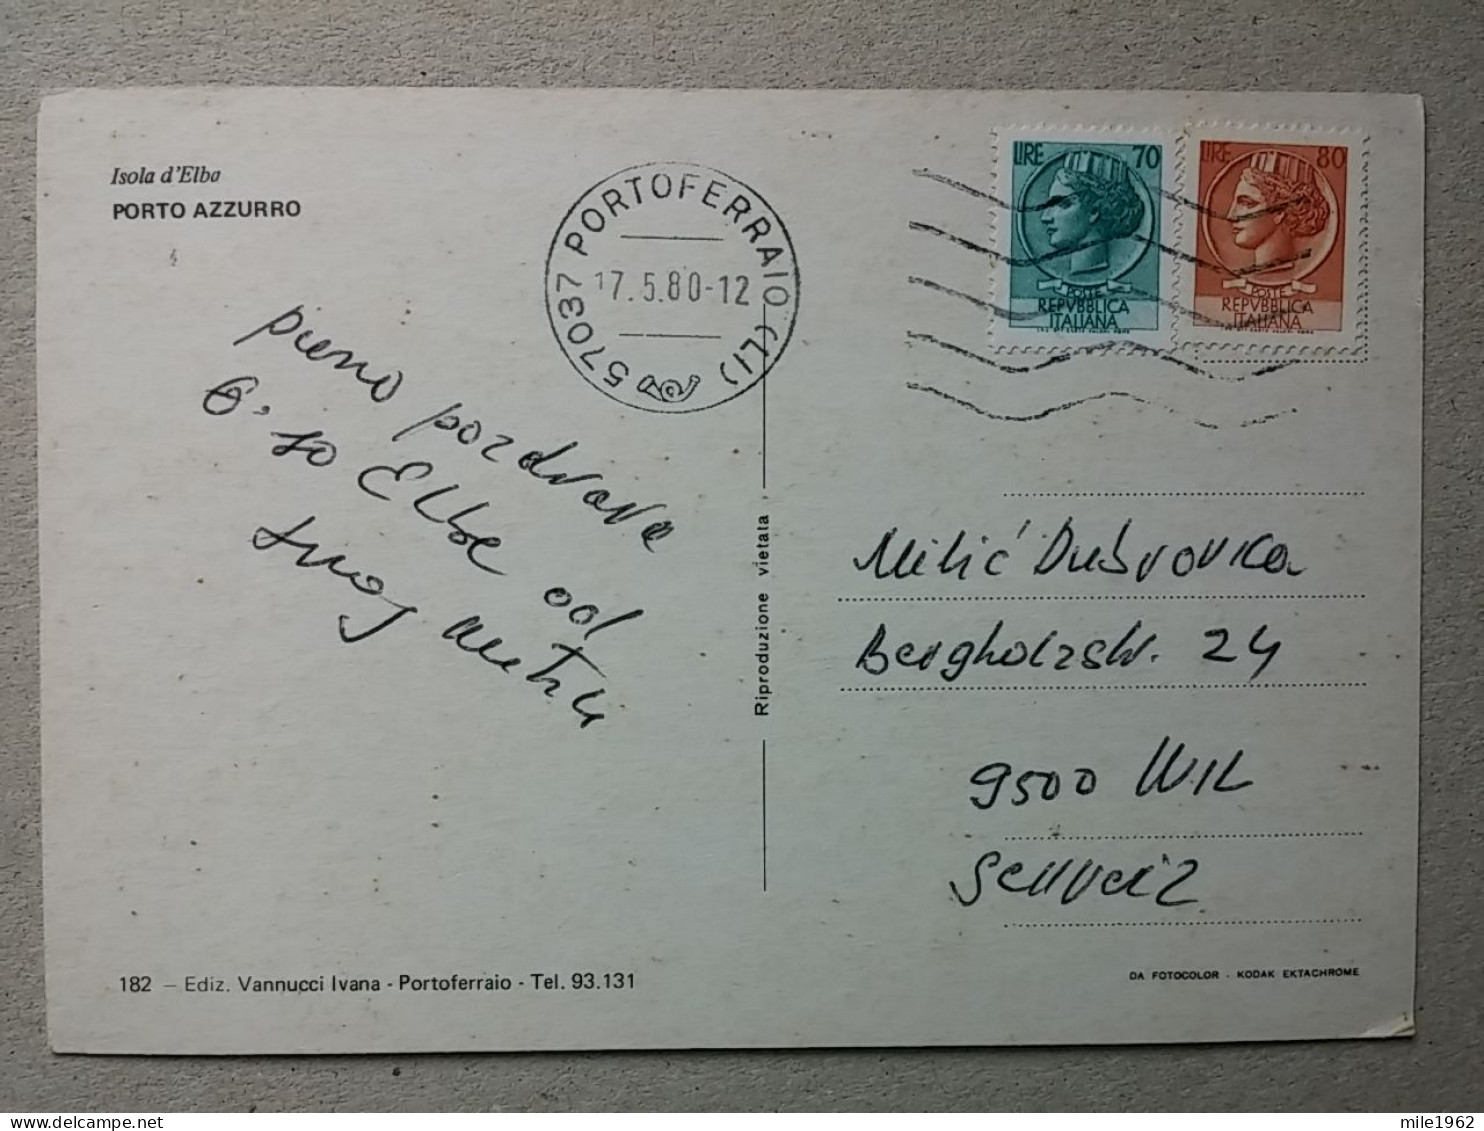 Isola d'Elba
PORTO AZZURRO
57037 PORTOFERRAIO (LI)
17.5.80-12
LIRE 70
POSTE
REPVBBLICA
ITALIANA
LIRE 80
POSTE
REPVBBLICA
ITALIANA
puno pozdrava
so Elbe od
tvog
Riproduzione vietata
Milić Dubravka
Bergholzstr. 24
9500 WIL
Schweiz
182 – Ediz. Vannucci Ivana - Portoferraio - Tel. 93.131
DA FOTOCOLOR - KODAK EKTACHROME
mile1962